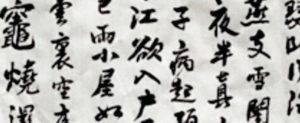 燕支雪闇
夜半真
子病起頭
江欲入戶
已雨小屋如
雲裏空
竈燒濕